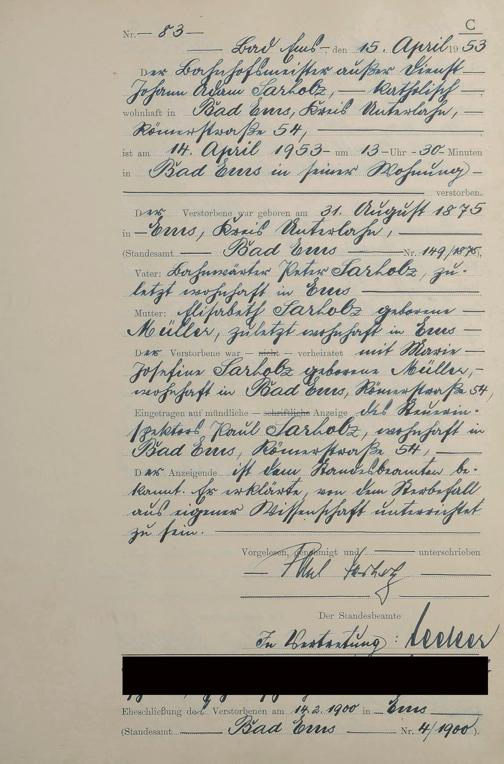 C
Nr. 83
Bad Ems, den 15. April 1953
Der Bahnhofsmeister außer Dienst
Johann Adam Sarholz, katholisch
wohnhaft in Bad Ems, Kreis Unterlahn,
Römerstraße 54,
ist am 14. April 1953 um 13 Uhr 30 Minuten
in Bad Ems in seiner Wohnung
verstorben.
Der Verstorbene war geboren am 31. August 1875
in Ems, Kreis Unterlahn,
(Standesamt Bad Ems Nr. 149/1875),
Vater: Bahnwärter Peter Sarholz, zu-
letzt wohnhaft in Ems
Mutter: Elisabeth Sarholz geborene
Müller, zuletzt wohnhaft in Ems
Der Verstorbene war nicht verheiratet mit Marie
Josefine Sarholz geborene Müller,
wohnhaft in Bad Ems, Römerstraße 54,
Eingetragen auf mündliche – schriftliche Anzeige des Steuerin-
spektors Paul Sarholz, wohnhaft in
Bad Ems, Römerstraße 54,
Der Anzeigende ist dem Standesbeamten be-
kannt. Er erklärte, von dem Sterbefall
aus eigener Wissenschaft unterrichtet
zu sein.
Vorgelesen, genehmigt und unterschrieben
Paul Sarholz
Der Standesbeamte
In Vertretung:
Eheschließung des Verstorbenen am 14.2.1900 in Ems
(Standesamt Bad Ems Nr. 4/1900).